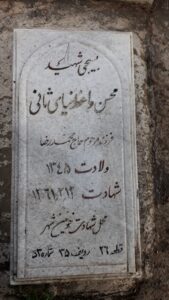 بسیجی شهید
محسن واعظ ضیای ثانی
فرزند مرحوم حاج محمدرضا
ولادت ۱۳۴۵
شهادت ۱۳۶۱٫۲٫۱۲
محل شهادت خونین شهر
قطعه ۲۶ ردیف ۳۵ شماره ۵۳